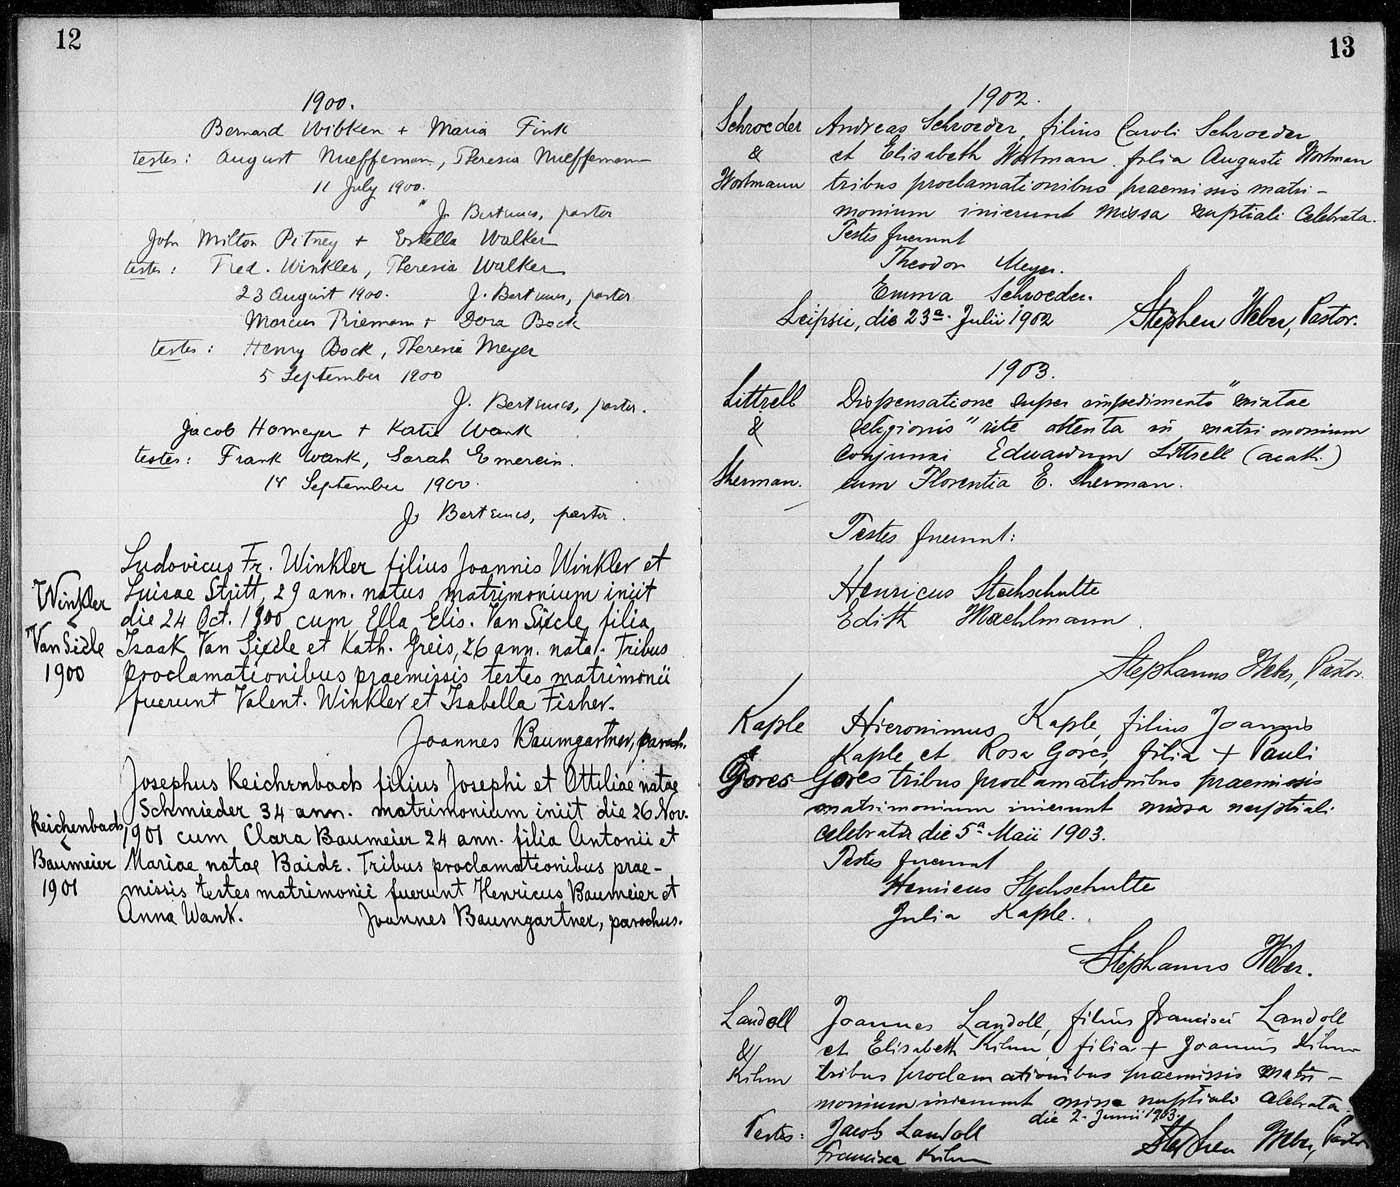 12
1900.
Bernard Wibken + Maria Fink
testes: August Nueffeman, Theresia Nueffeman
11 July 1900.
J. Bertemes, pastor
John Milton Pitney + Estella Walker
testes: Fred. Winkler, Theresia Walker
23 August 1900. J. Bertemes, pastor
Marcus Riemann + Dora Bock
testes: Henry Bock, Theresia Meyer
5 September 1900
J. Bertemes, pastor.
Jacob Homeyer + Katie Wank
testes: Frank Wank, Sarah Emerein.
18 September 1900.
J. Bertemes, pastor.
Winkler
Van Sicle
1900
Ludovicus Fr. Winkler filius Joannis Winkler et
Luisae Stritt, 29 ann. natus matrimonium iniit
die 24 Oct. 1900 cum Ella Elis. Van Sicle, filia
Isaak Van Sicle et Kath. Greis, 26 ann. nata. Tribus
proclamationibus praemissis testes matrimonii
fuerunt Valent. Winkler et Isabella Fisher.
Joannes Baumgartner, paroch.
Reichenbach
Baumeier
1901
Josephus Reichenbach filius Josephi et Ottiliae natae
Schmieder 34 ann. matrimonium iniit die 26 Nov.
1901 cum Clara Baumeier 24 ann. filia Antonii et
Mariae natae Baide. Tribus proclamationibus prae-
missis testes matrimonii fuerunt Henricus Baumeier et
Anna Wank. Joannes Baumgartner, parochus.
13
1902.
Schroeder
&
Wortmann
Andreas Schroeder, filius Caroli Schroeder
et Elisabeth Wortman, filia Augusti Wortman
tribus proclamationibus praemissis matri-
monium inierunt missa nuptiali celebrata.
Testes fuerunt
Theodor Meyer.
Emma Schroeder.
Leipsic, die 23a Julii 1902 Stephen Weber, Pastor.
1903.
Littrell
&
Sherman.
Dispensatione super impedimento "mixtae
religionis" rite obtenta in matrimonium
conjunxi Eduardum Littrell (acath.)
cum Florentia E. Sherman.
Testes fuerunt:
Henricus Stechschulte
Edith Maehlmann.
Stephanus Weber, Pastor.
Kaple
&
Gores
Hieronimus Kaple, filius Joannis
Kaple et Rosa Gores, filia + Pauli
Gores tribus proclamationibus praemissis
matrimonium inierunt missa nuptiali
celebrata die 5a Maii 1903.
Testes fuerunt
Henricus Stechschulte
Julia Kaple.
Stephanus Weber.
Landoll
&
Kihm
Joannes Landoll, filius Francisci Landoll
et Elisabeth Kihm, filia + Joannis Kihm
tribus proclamationibus praemissis matri-
monium inierunt missa nuptiali celebrata
die 2. Junii 1903.
Testes: Jacob Landoll Stephen Weber, Pastor
Francisca Kihm